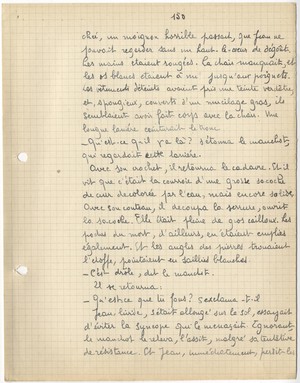 150
chei, un moignon horrible passait, que Jean ne
pouvait regarder sans un haut-le-cœur de dégoût.
Les mains étaient rongées. La chair manquait, et
les os blancs étaient à nu jusqu'aux poignets.
Les vêtements déteints avaient pris une teinte verdâtre,
et, spongieux, couverts d'un mucilage gras, ils
semblaient avoir fait corps avec la chair. Une
longue lanière ceinturait le
- Qu'est-ce qu'il y a là ? s'étonna le manchot,
qui regardait cette lanière.
Avec son crochet, il retourna le cadavre. Et il
vit que c'était la courroie d'une grosse sacoche
de cuir décolorée par l'eau, mais encore solide.
Avec son couteau, il découpa la serrure, ouvrit
la sacoche. Elle était pleine de gros cailloux. Les
poches du mort, d'ailleurs, en étaient emplies
également. Et les angles des pierres trouaient
l'étoffe, pointaient en saillies blanches.
- C'est drôle, dit le manchot.
Il se retourna :
- Qu'est-ce que tu fous ? s'exclama-t-il.
Jean livide, s'était allongé sur le sol, essayant
d'éviter la syncope qui le menaçait. Ignorant,
le manchot le releva, l'assit, malgré sa tentative
de résistance. Et Jean, immédiatement, perdit les